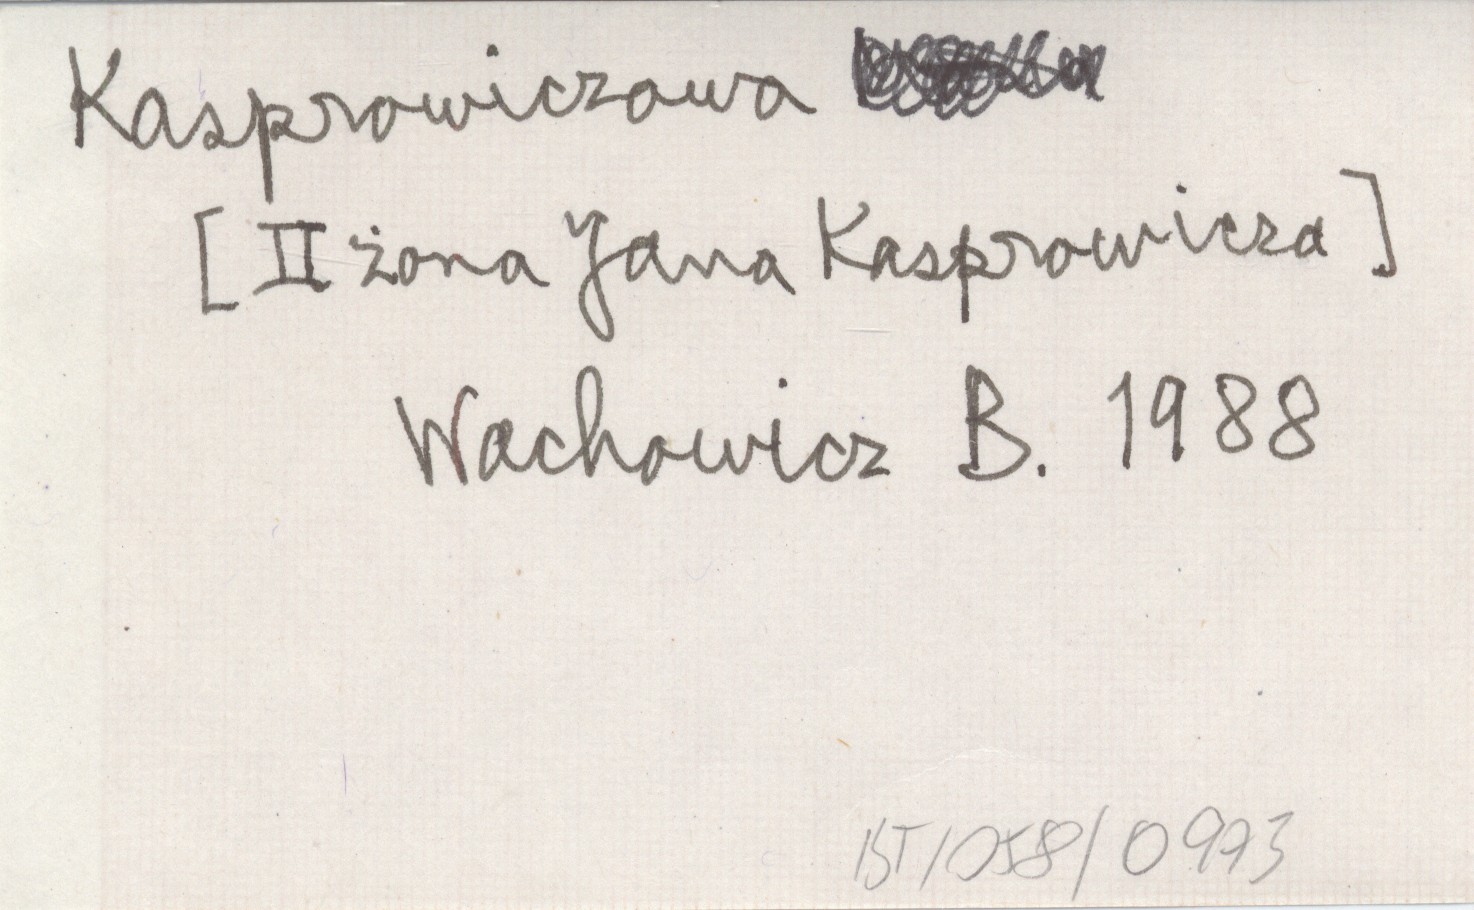 Kasprowiczowa
[II żona Jana Kasprowicza]
Wachowicz B. 1988
BT/058/0973